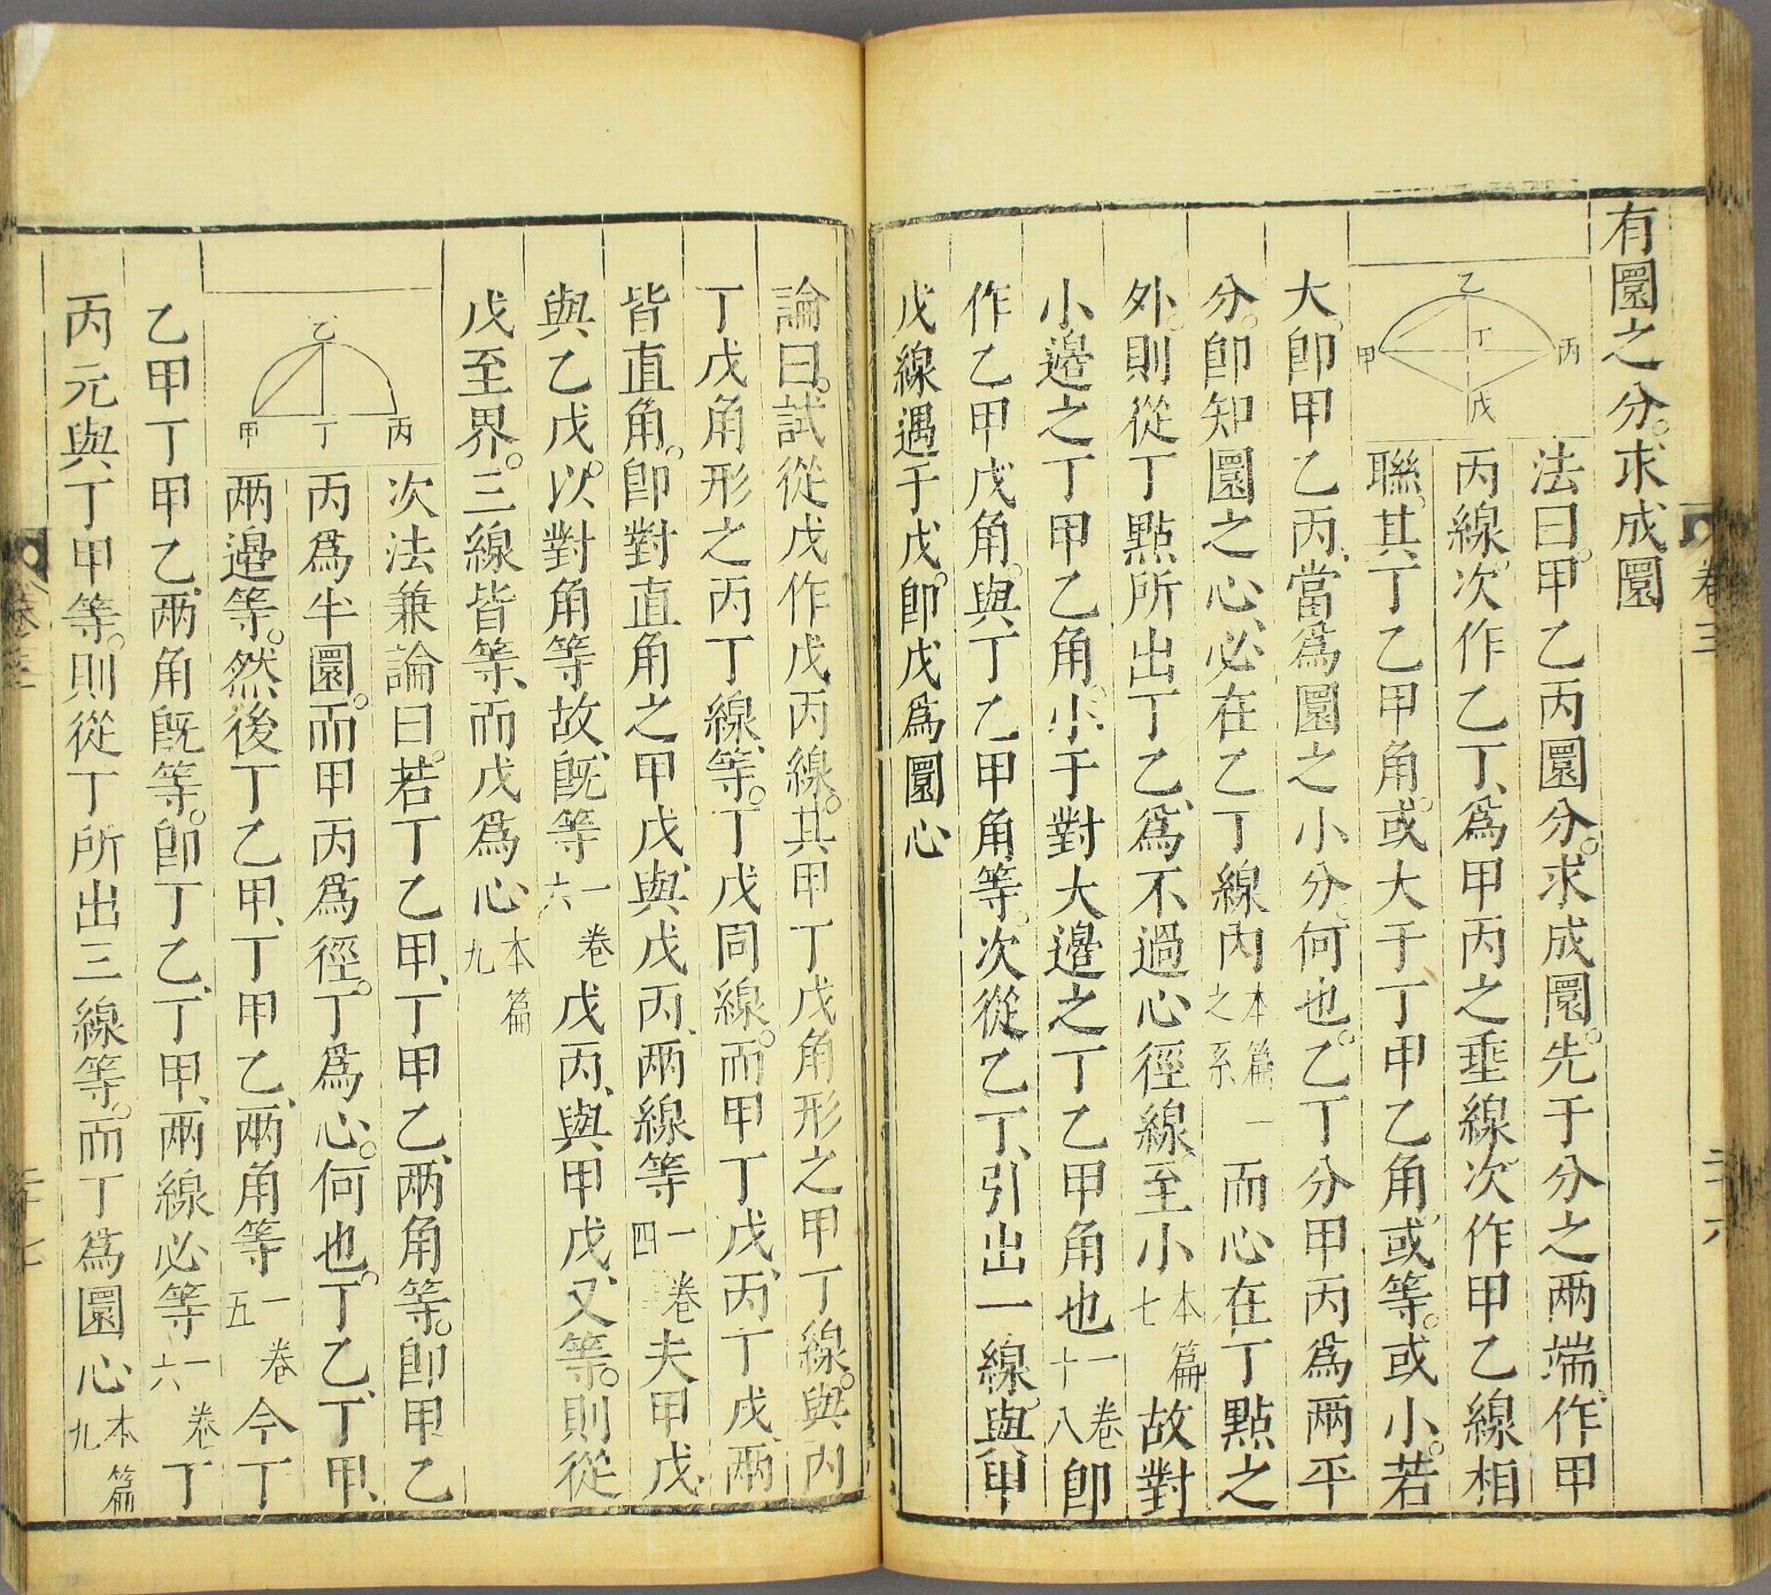 有圜之分。求成圜
法曰。甲乙丙圜分。求成圜。先于分之兩端。作甲
丙線。次作乙丁、爲甲丙之垂線。次作甲乙線相
聯。其丁乙甲角。或大于丁甲乙角。或等。或小。若
乙
丙
丁
甲
戊
大。卽甲乙丙、當爲圜之小分。何也。乙丁分甲丙爲兩平
分。卽知圜之心、必在乙丁線內本篇一之系而心在丁點之
外。則從丁點所出丁乙、爲不過心徑線至小本篇七故對
小邊之丁甲乙角。小于對大邊之丁乙甲角也一卷十八卽
作乙甲戊角。與丁乙甲角等。次從乙丁、引出一線。與甲
戊線遇于戊。卽戊爲圜心
卷三
二十六
論曰。試從戊作戊丙線。其甲丁戊角形之甲丁線。與丙
丁戊角形之丙丁線、等。丁戊同線。而甲丁戊、丙丁戊、兩
皆直角。卽對直角之甲戊、與戊丙、兩線等一卷四夫甲戊、
與乙戊。以對角等故、旣等一卷六戊丙、與甲戊、又等。則從
戊至界。三線皆等、而戊爲心本篇九
次法兼論曰。若丁乙甲、丁甲乙、兩角等。卽甲乙
丙爲半圜。而甲丙爲徑。丁爲心。何也。丁乙、丁甲、
兩邉等。然後丁乙甲、丁甲乙、兩角等一卷五今丁
乙
丙
丁
甲
乙甲丁甲乙、兩角旣等。卽丁乙、丁甲、兩線必等一卷六丁
丙元與丁甲等。則從丁所出三線等。而丁爲圜心本篇九
卷三
二十七